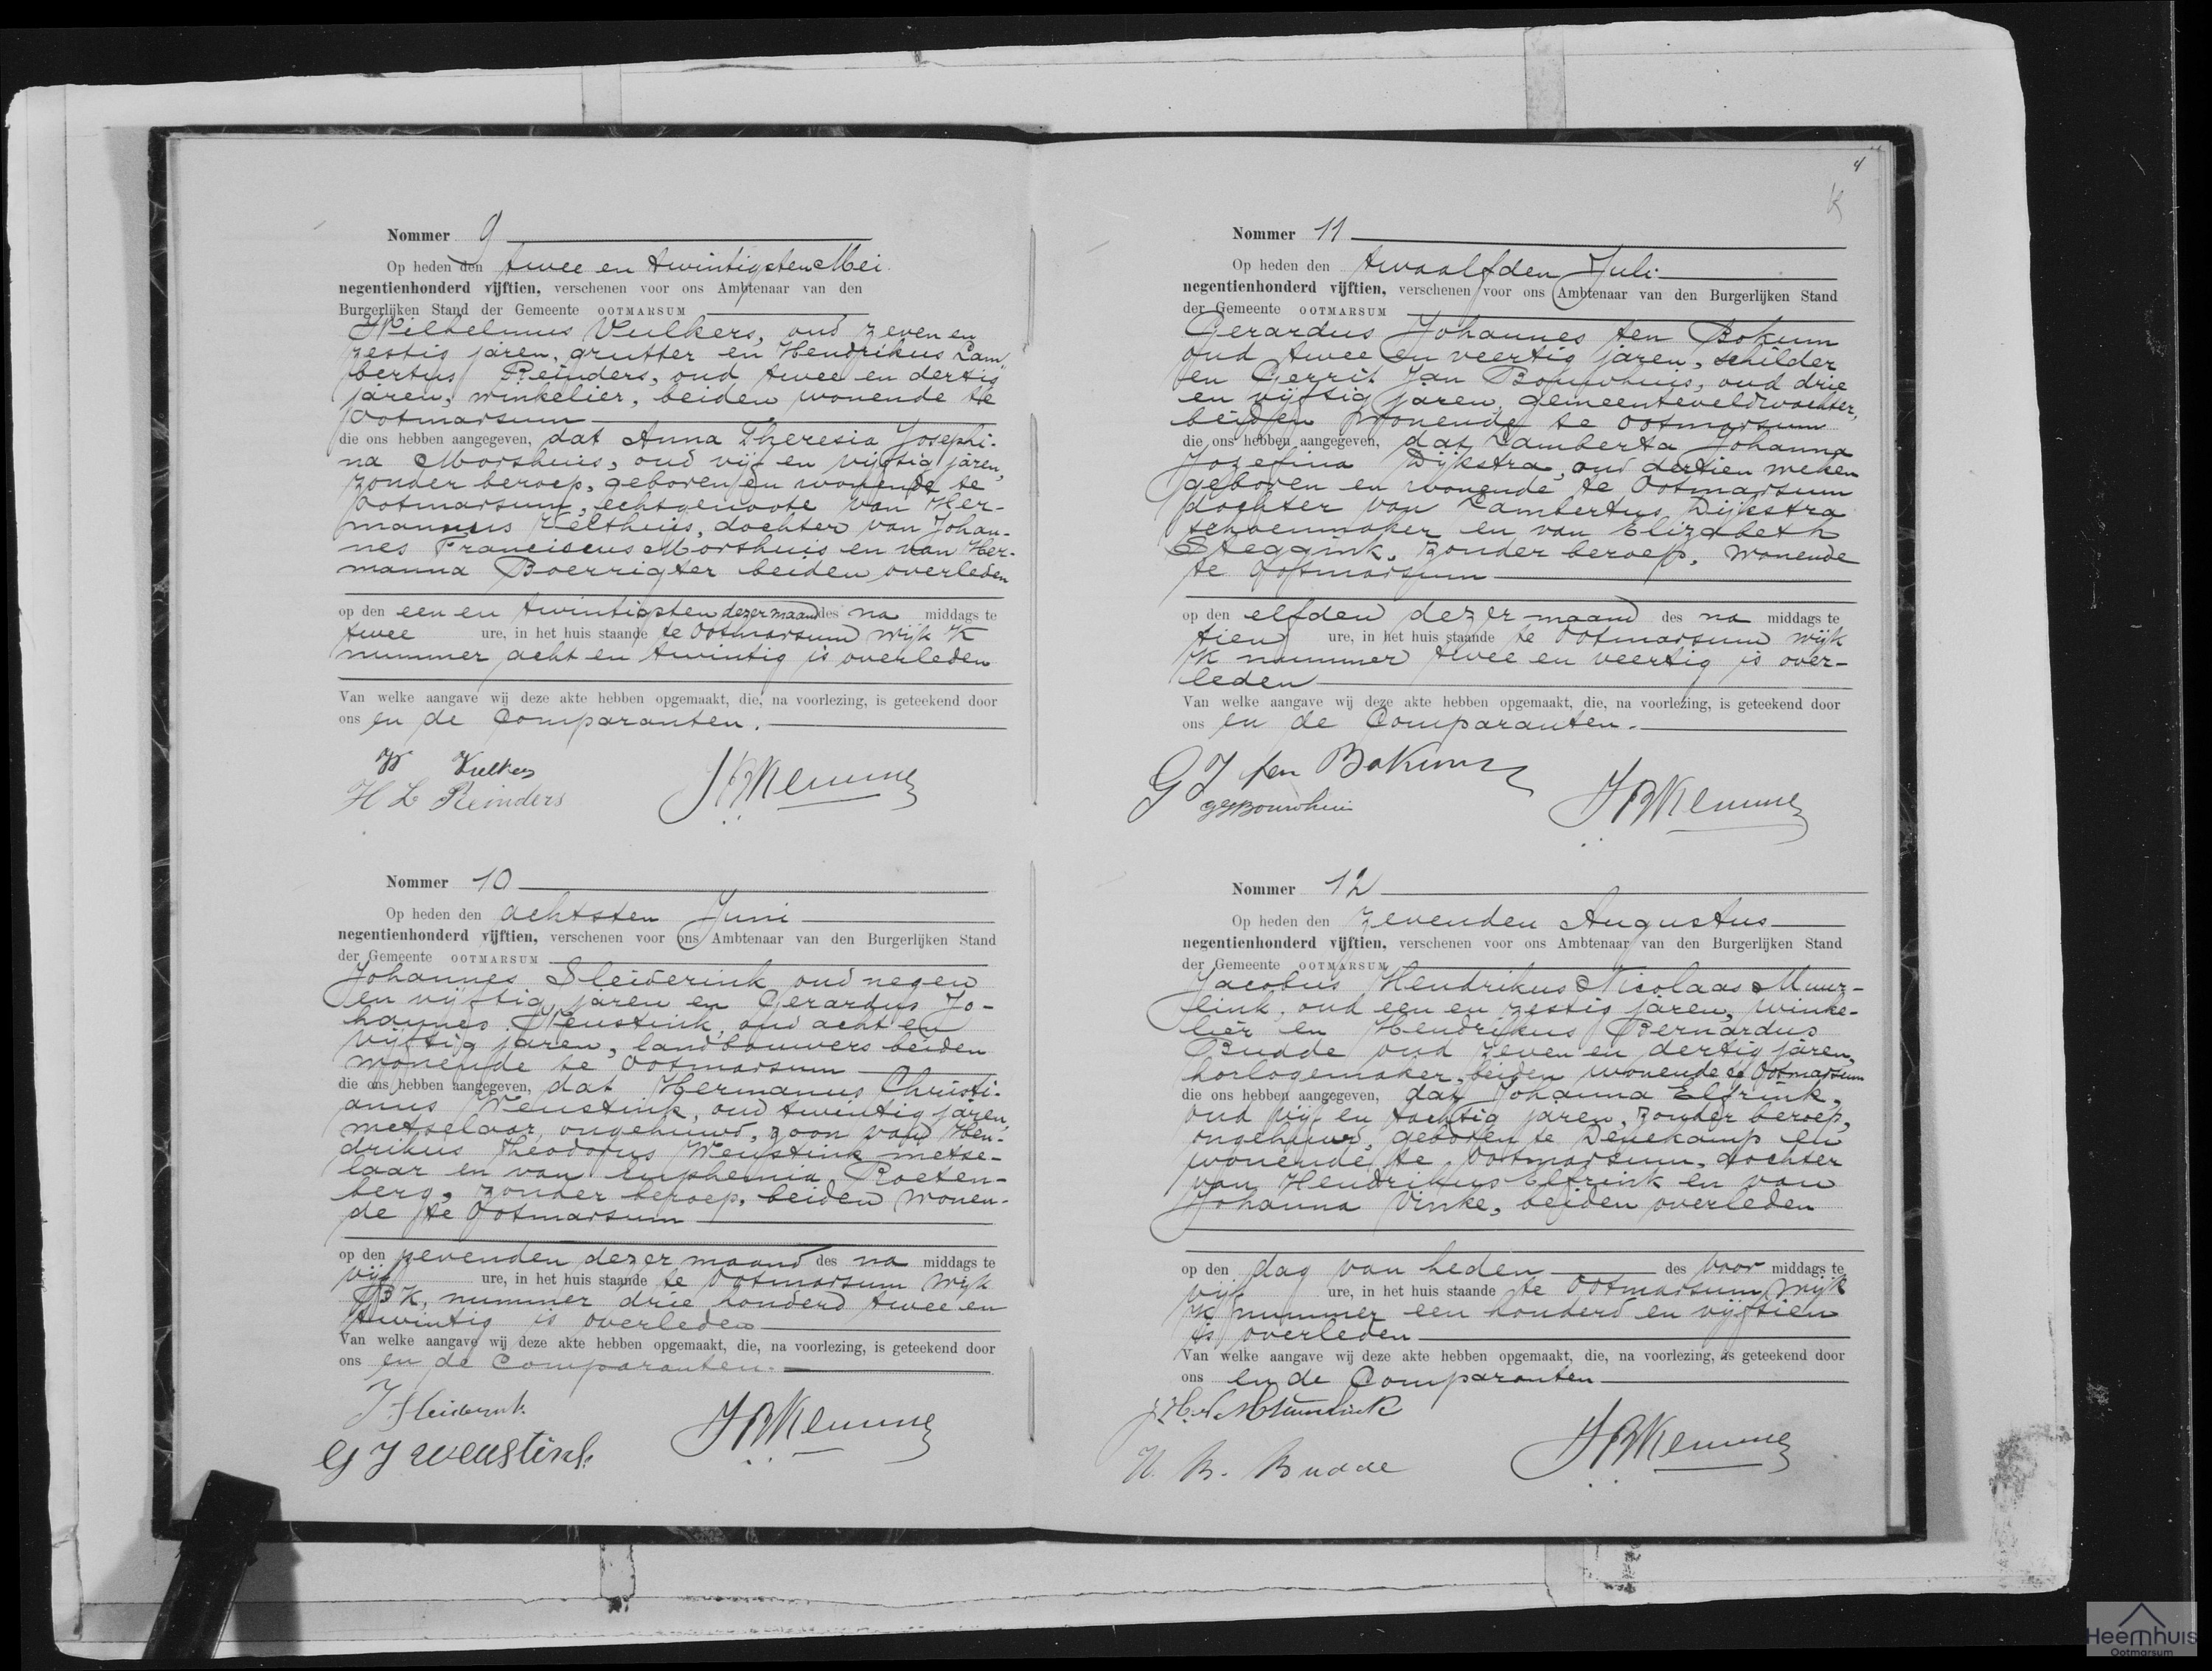 Nommer 9
Op heden den twee en twintigsten Mei
negentienhonderd vijftien, verschenen voor ons Ambtenaar van den
Burgerlijken Stand der Gemeente OOTMARSUM
Wilhelmus Vulkers, oud zeven en
zestig jaren, grutter en Hendrikus Lam"
bertus Reinders, oud twee en dertig
jaren, winkelier, beiden wonende te
Ootmarsum
die ons hebben aangegeven, dat Anna Theresia Josephi-
na Morshuis, oud vijf en vijftig jaren,
zonder beroep, geboren en wonende te
Ootmarsum, echtgenoote van Her-
mannus Velthuis, dochter van Johan-
nes Franciscus Morshuis en van Her-
manna Boerrigter beiden overleden
op den een en twintigsten dezer maand des na middags te
twee ure, in het huis staande te Ootmarsum wijk K
nummer acht en twintig is overleden
Van welke aangave wij deze akte hebben opgemaakt, die, na voorlezing, is geteekend door
ons en de Comparanten.
W Vulkers
H L Reinders
JBKemme
Nommer 10
Op heden den achtsten Juni
negentienhonderd vijftien, verschenen voor ons Ambtenaar van den Burgerlijken Stand
der Gemeente OOTMARSUM
Johannes Sleiderink oud negen
en vijftig jaren en Gerardus Jo-
hannes Weustink, oud acht en
vijftig jaren, landbouwers beiden
wonende te Ootmarsum
die ons hebben aangegeven, dat Hermanus Christi-
anus Weustink, oud twintig jaren,
metselaar, ongehuwd, zoon van Hen-
drikus Theodorus Weustink metse-
laar en van Euphemia Roeten-
berg, zonder beroep, beiden wonen-
de te Ootmarsum
op den zevenden dezer maand des na middags te
vijf ure, in het huis staande te Ootmarsum wijk
K, nummer drie honderd twee en
twintig is overleden
Van welke aangave wij deze akte hebben opgemaakt, die, na voorlezing, is geteekend door
ons en de Comparanten.
J Sleiderink
G J Weustink
JBKemme
4
K
Nommer 11
Op heden den twaalfden Juli
negentienhonderd vijftien, verschenen voor ons Ambtenaar van den Burgerlijken Stand
der Gemeente OOTMARSUM
Gerardus Johannes ten Bokum
oud twee en veertig jaren, schilder
en Gerrit Jan Bouwhuis, oud drie
en vijftig jaren, gemeenteveldwachter,
beiden wonende te Ootmarsum
die ons hebben aangegeven, dat Lamberta Johanna
Jozefina Dijkstra, oud dertien weken
geboren en wonende te Ootmarsum
dochter van Lambertus Dijkstra
schoenmaker en van Elizabeth
Steggink, zonder beroep, wonende
te Ootmarsum
op den elfden dezer maand des na middags te
tien ure, in het huis staande te Ootmarsum wijk
K nummer twee en veertig is over-
leden
Van welke aangave wij deze akte hebben opgemaakt, die, na voorlezing, is geteekend door
ons en de Comparanten.
G J ten Bokum
GJBouwhuis
JBKemme
Nommer 12
Op heden den zevenden Augustus
negentienhonderd vijftien, verschenen voor ons Ambtenaar van den Burgerlijken Stand
der Gemeente OOTMARSUM
Jacobus Hendrikus Nicolaas Muur-
link, oud een en zestig jaren, winke-
lier en Hendrikus Bernardus
Budde oud zeven en dertig jaren,
horlogemaker, beiden wonende te Ootmarsum
die ons hebben aangegeven, dat Johanna Elfrink,
oud vijf en tachtig jaren, zonder beroep,
ongehuwd, geboren te Denekamp en
wonende te Ootmarsum, dochter
van Hendrikus Elfrink en van
Johanna Vinke, beiden overleden
op den dag van heden des voor middags te
vijf ure, in het huis staande te Ootmarsum wijk
K nummer een honderd en vijftien
is overleden
Van welke aangave wij deze akte hebben opgemaakt, die, na voorlezing, is geteekend door
ons en de Comparanten
J.H.N. Muurlink
H. B. Budde
JBKemme
Heemhuis
Ootmarsum